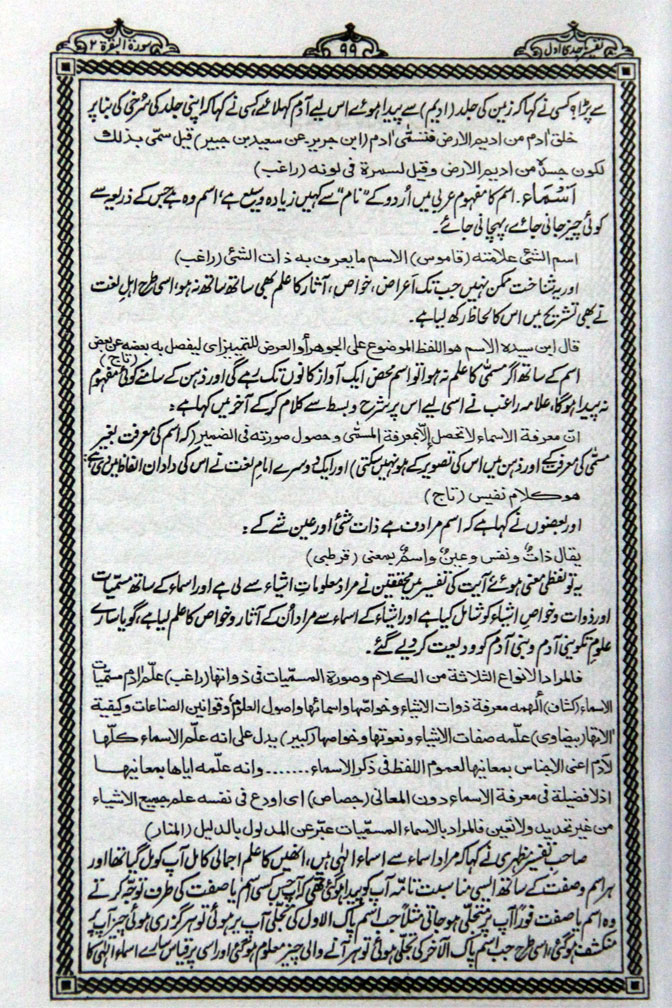 تفسیر ماجدی اول
۹۹
سورة البقرة ۲
سے پڑا؟ کسی نے کہا کہ زمین کی جلد (ادیم) سے پیدا ہوئے اس لیے آدم کہلائے کسی نے کہا کہ اپنی جلد کی سُرخی کی بنا پر
خلق اٰدم من ادیم الارض فسمّی اٰدم (ابن جریر عن سعید بن جبیر) قیل سمّی بذلك
لکون جسدہٖ من ادیم الارض وقیل لسمرة فی لونه (راغب)
اَسْمَاء۔ اسم کا مفہوم عربی میں اُردو کے "نام" سے کہیں زیادہ وسیع ہے، اسم وہ ہے جس کے ذریعہ سے
کوئی چیز جانی جائے، پہچانی جائے۔
اسم الشئی علامته (قاموس) الاسم مایعرف به ذات الشئی (راغب)
اور یہ شناخت ممکن نہیں جب تک اَعراض، خواص، آثار کا علم بھی ساتھ ساتھ نہ ہو، اسی طرح اہلِ لغت
نے بھی تشریح میں اس کا لحاظ رکھ لیا ہے۔
قال ابن سیده الاسم هو اللفظ الموضوع علی الجوهر أو العرض للتمییز ای لیفصل به بعضه عن بعض (تاج)
اسم کے ساتھ اگر مسمّٰی کا علم نہ ہوا تو اسم محض ایک آواز کانوں تک رہے گی اور ذہن کے سامنے کوئی مفہوم
نہ پیدا ہوگا، علامہ راغب نے اسی لیے اس پر شرح و بسط سے کلام کرکے آخر میں کہا ہے:
ان معرفة الاسماء لاتحصل إلّا بمعرفة المسمّٰی وحصول صورته فی الضمیر (کہ اسم کی معرفت بغیر
مسمّٰی کی معرفت کے اور ذہن میں اس کی تصویر کے ہو نہیں سکتی) اور ایک دوسرے امامِ لغت نے اس کی داد ان الفاظ میں دی ہے:
هو کلام نفیس (تاج)
اور بعضوں نے کہا ہے کہ اسم مرادف ہے ذات شئ اور عین شے کے:
یقال ذاتٌ ونفس وعینٌ واسمٌ بمعنی (قرطبی)
یہ تو لفظی معنی ہوئے آیت کی تفسیر میں محققین نے مراد معلوماتِ اشیاء سے لی ہے اور اسماء کے ساتھ مسمّیات
اور ذوات و خواصِ اشیاء کو شامل کیا ہے اور اشیاء کے اسماء سے مراد اُن کے آثار و خواص کا علم لیا ہے، گویا سارے
علومِ تکوینی آدم و بنی آدم کو ودیعت کردیے گئے۔
فالمراد الانواع الثلاثة من الکلام وصورة المسمّیات فی ذواتها (راغب) علّم اٰدم مسمّیات
الاسماء (کشاف) ألهمه معرفة ذوات الاشیاء وخواصّها واسمائها واصول العلوم وقوانین الصناعات وکیفیة
آلاتها (بیضاوی) علّمه صفات الاشیاء ونعوتها وخواصها (کبیر) یدل علی انه علّم الاسماء کلّها
لاٰدم اعنی الاجناس بمعانیها لعموم اللفظ فی ذکر الاسماء ....... وانه علّمه ایاها بمعانیها
اذ لا فضیلة فی معرفة الاسماء دون المعانی (جصاص) ای اودع فی نفسه علم جمیع الاشیاء
من غیر تحدید ولا تعین فالمراد بالاسماء المسمّیات عبّر عن المدلول بالدلیل (المنار)
صاحبِ تفسیر مظہری نے کہا کہ مراد اسماء سے اسماء الٰہی ہیں، انھیں کا علم اجمالی کامل آپ کو مل گیا تھا اور
ہر اسم و صفت کے ساتھ ایسی مناسبت تامّہ آپ کو پیدا ہوگئی تھی کہ آپ جس کسی اسم یا صفت کی طرف توجہ کرتے
وہ اسم یا صفت فوراً آپ پر متجلّی ہوجاتی مثلاً جب اسمِ پاک الاول کی تجلّی آپ پر ہوئی تو ہر گزری ہوئی چیز آپ پر
منکشف ہوگئی، اسی طرح جب اسمِ پاک الآخر کی تجلّی ہوئی تو ہر آنے والی چیز معلوم ہوگئی اور اسی پر قیاس سارے اسماء الٰہی کا